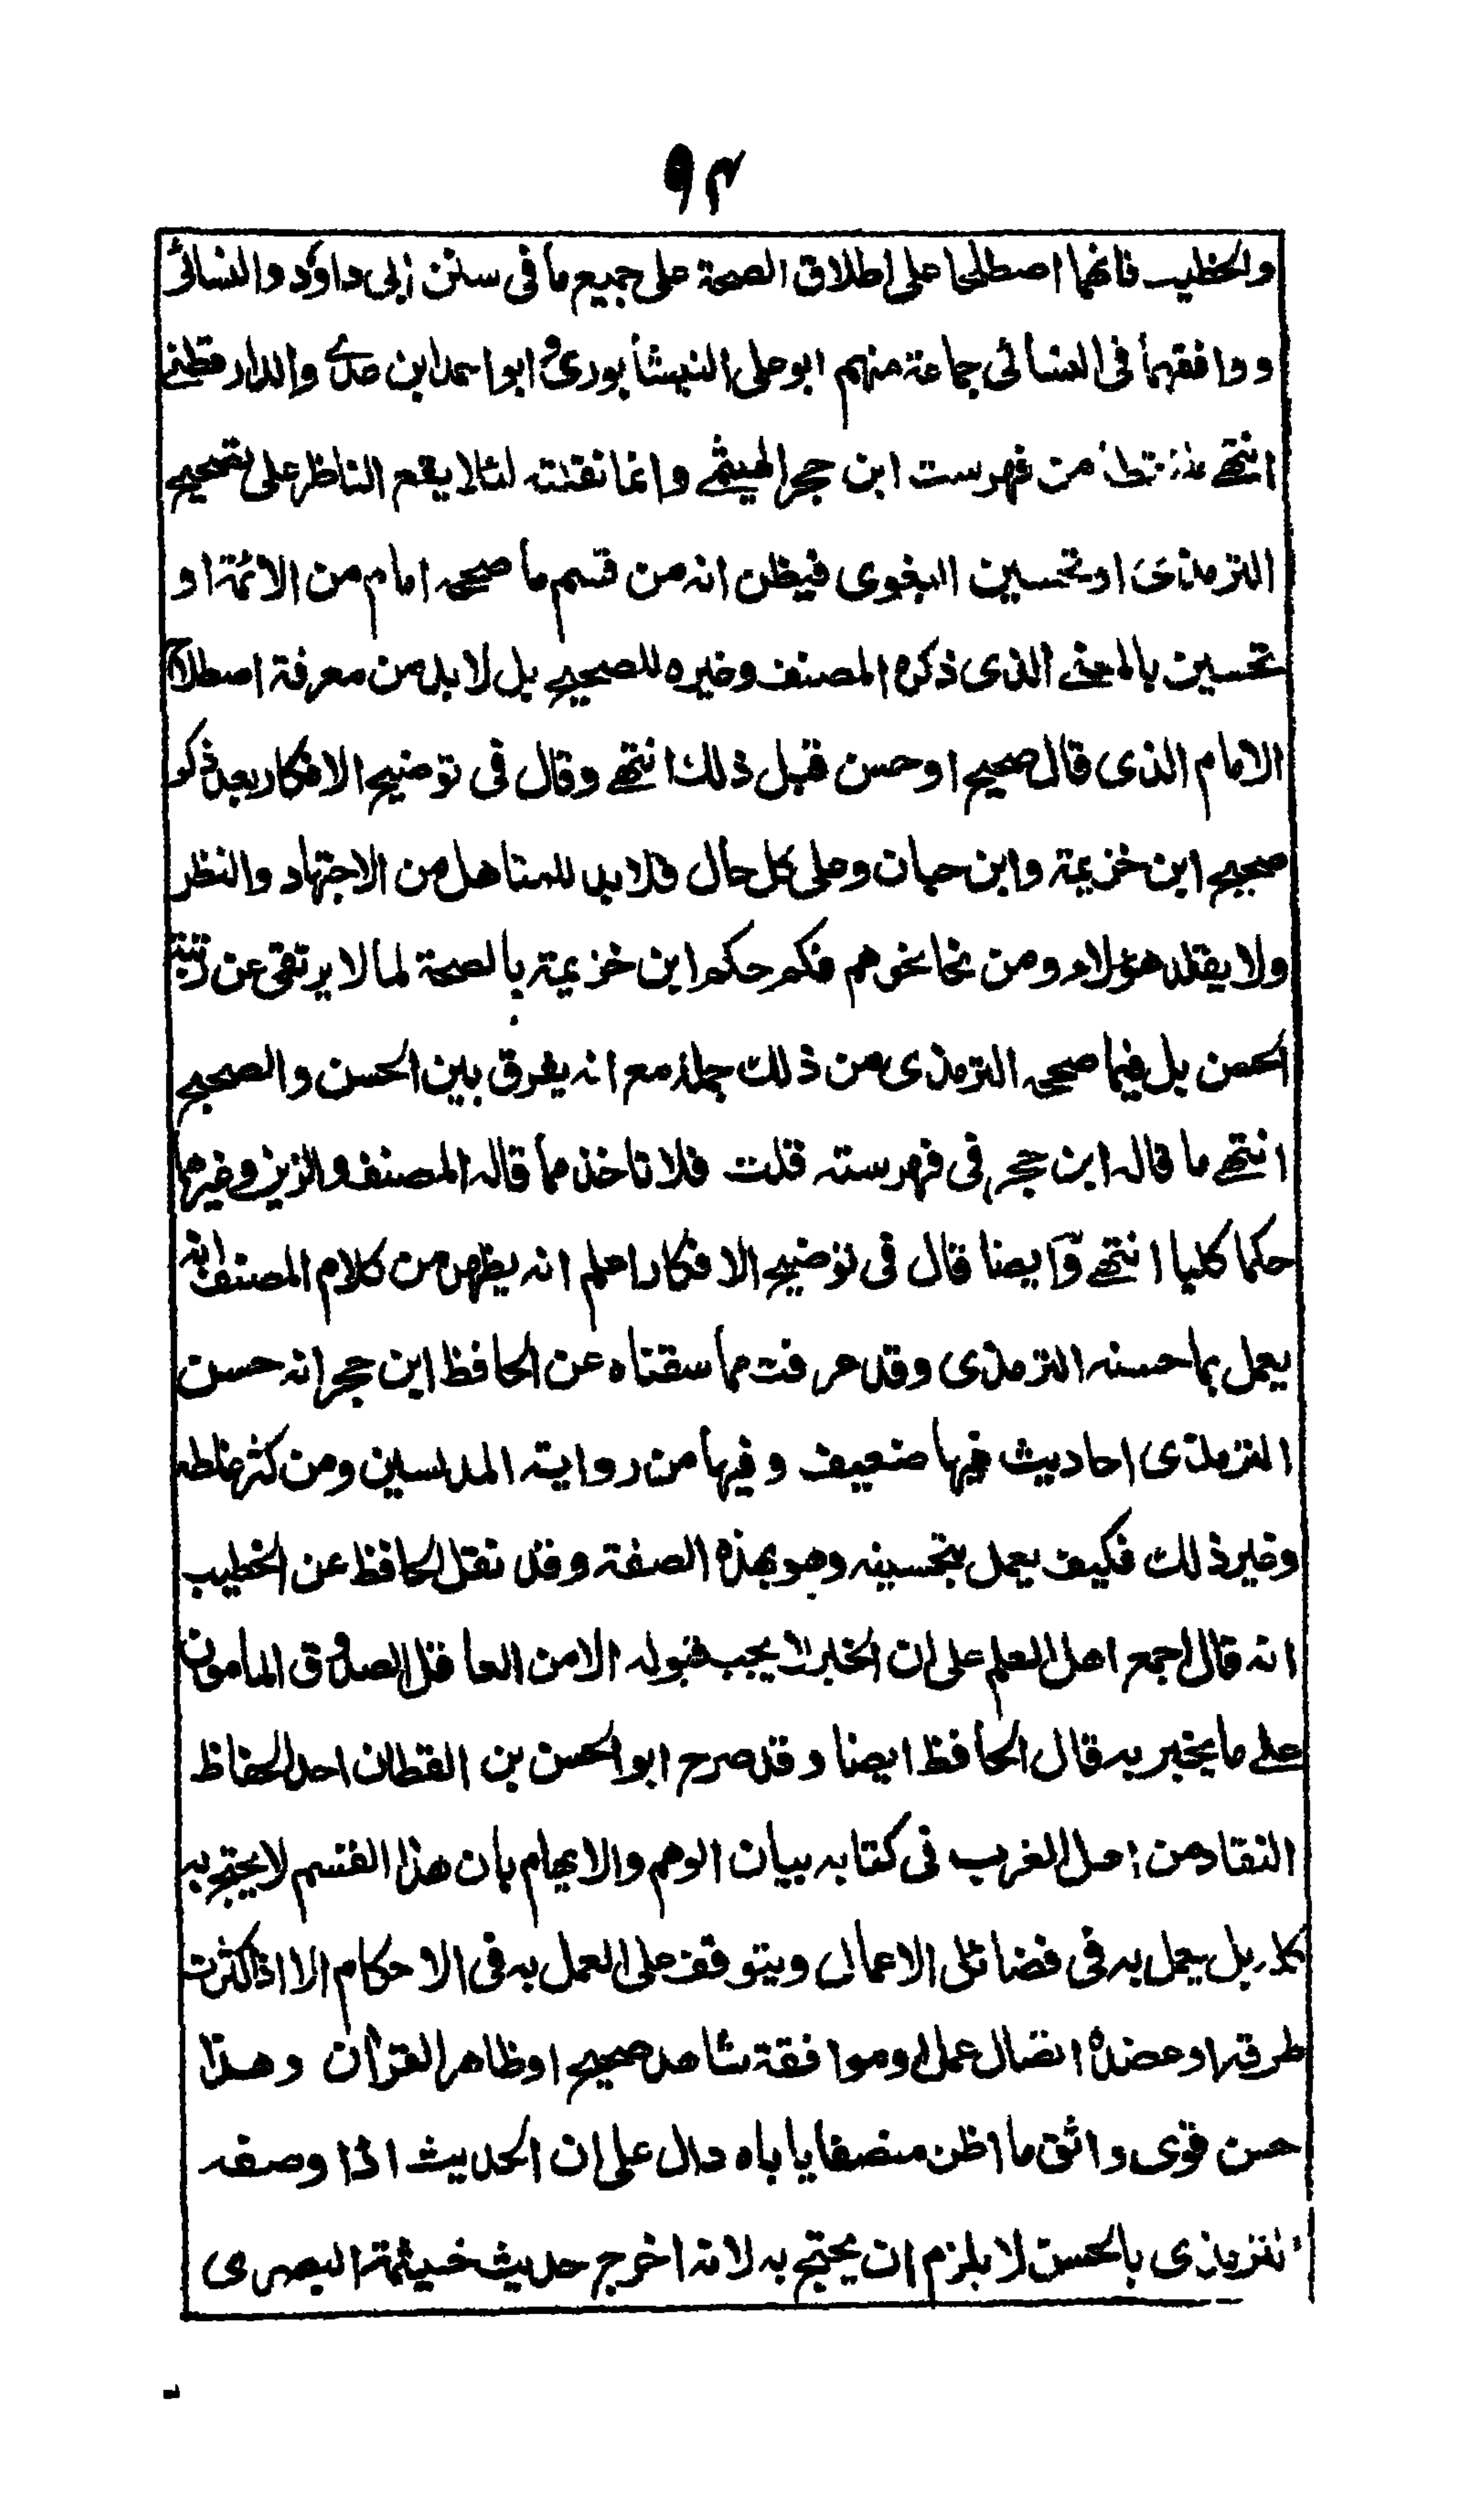 ٩٣
والخطيب فانهما اصطلحا على اطلاق الصحة على جميع ما فى سنن ابى داؤد والنسائى
ووافقهما فى النسائى جماعة منهم ابو على النيشابورى وابو احمد ابن عدى والدارقطنى
انتهى من فهرست ابن حجر الهيثمى وانما نقلته لئلا يقع الناظر على تصحيح
الترمذى او تحسين البغوى فيظن انه من قسم ما صححه امام من الائمة او
تحسين بالمعنى الذى ذكره المصنف وغيره للصحيح بل لا بد من معرفة اصطلاح
الامام الذى قال صحيح او حسن قبل ذلك انتهى وقال فى توضيح الافكار بعد ذكر
صحيح ابن خزيمة وابن حبان وعلى كل حال فلا بد للمتاهل من الاجتهاد والنظر
ولا يقلد هؤلاء ومن نحا نحوهم فكم حكم ابن خزيمة بالصحة لما لا يرتقى عن رتبة
الحسن بل فيما صححه الترمذى من ذلك جملة مع انه يفرق بين الحسن والصحيح
انتهى ما قاله ابن حجر فى فهرسته قلت فلا تاخذ مما قاله المصنف والزين وغيرهما
حكما كليا انتهى وايضا قال فى توضيح الافكار اعلم انه يظهر من كلام المصنف انه
يعمل بما حسنه الترمذى وقد عرفت مما سقناه عن الحافظ ابن حجر انه حسن
الترمذى احاديث فيها ضعيف وفيها من رواية المدلسين ومن كثر غلطه
وغير ذلك فكيف يعمل بتحسينه وهو بهذه الصفة وقد نقل الحافظ عن الخطيب
انه قال اجمع اهل العلم على ان الخبر لا يجب قبوله الا من العاقل الصدوق المامون
على ما يخبر به قال الحافظ ايضا وقد صرح ابو الحسن بن القطان احد الحفاظ
النقاد من اهل الغرب فى كتابه بيان الوهم والايهام بان هذا القسم لا يحتج به
كله بل يعمل به فى فضائل الاعمال ويتوقف على العمل به فى الاحكام الا اذا كثرت
طرقه او عضده اتصال عمل او موافقة شاهد صحيح او ظاهر القران وهذا
حسن قوى واثق ما اظن منصفا ياباه دال على ان الحديث اذا وصفه
الترمذى بالحسن لا يلزم ان يحتج به لانه اخرج حديث خيثمة البصرى